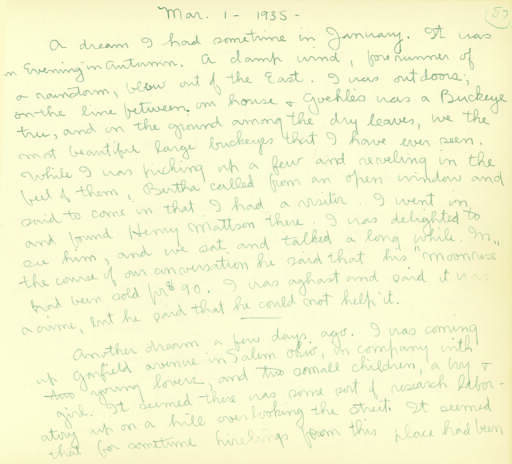 Mar. 1 - 1935 -
A dream I had sometime in January. It was
n Evening in Autumn. A damp wind, forerunner of
a rainstorm, blew out of the East. I was outdoors;
on the line between our house & Goehles was a Buckeye
tree, and in the ground among the dry leaves, were the
most beautiful large buckeyes that I have ever seen.
While I was picking up a few and reveling in the
feel of them, Bertha called from an open window and
said to come in that I had a visitor. I went in
and found Henry Mattson there. I was delighted to
see him, and we sat and talked a long while. In
the course of our conversation he said that his "Moonrise"
had been sold for $90. I was aghast and said it was
a crime, but he said that he could not help it.
Another dream a few days ago. I was coming
up Garfield avenue in Salem Ohio, in company with
two young lovers, and two small children, a boy &
girl. It seemed there was some sort of research labor-
atory up on a hill overlooking the street. It seemed
that for sometime hirelings from this place had been